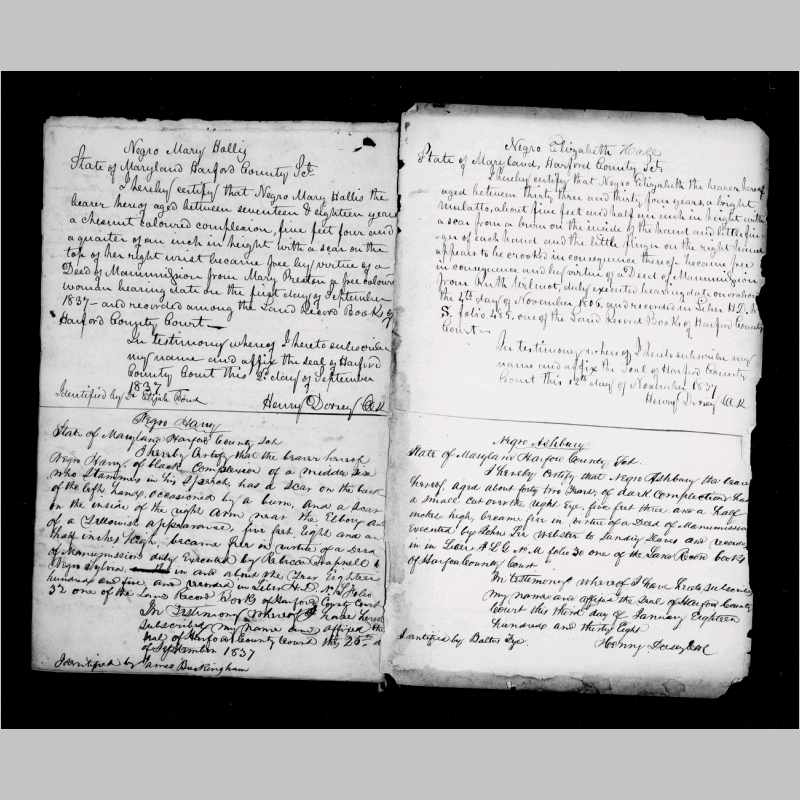 Negro Mary Hallis
State of Maryland Harford County Sct
I hereby certify that Negro Mary Hallis the
bearer hereof aged between seventeen & eighteen years
a chesnut coloured complexion, five feet four and
a quarter of an inch in height with a scar on the
top of her right wrist became free by virtue of a
Deed of Manumission from Mary Preston a free coloured
woman bearing date on the first day of September
1837 - and recorded among the Land Record Books of
Harford County Court
In testimony whereof I hereto subscribe
my name and affix the seal of Harford
County Court this 2d day of September
1837
Identified by Dr Elijah Henry Dorsey Clk
Negro Harry
State of Maryland Harford County Sct
I hereby Certify that the bearer hereof
Negro Harry, of black Complexion of a middle size
who Stammers in his Speech, has a Scar on the back
of the left hand, occasioned by a burn, and a Scar
on the inside of the right arm near the Elbow and
of a yellowish appearance, five feet Eight and an
half inches high, became free in virtue of a deed
of Manumission duly Executed by Rebecca to
Negro Sylvia in and about the Year Eighteen
hundred and five, and recorded in Liber H.D. No S folio
32 one of the Land Record Books of Harford County Court
In Testimony whereof I have hereto
subscribed my name and affixed the
seal of Harford County Court this 25th d
of September 1837
Identified by James Buckingham
Negro Elizabeth
State of Maryland, Harford County Sct
I hereby certify that Negro Elizabeth the bearer hereof
aged between thirty three and thirty four years, a bright
mulatto, about five feet and half an inch in height with
a scar from a burn on the inside of the hand and little fin-
ger of each hand and the little finger on the right hand
appears to be crooked in consequence thereof became free
in consequence and by virtue of a Deed of Manumission
from Ruth duly executed bearing date on or about
the 4th day of November 1806, and recorded in Liber H.D. No
S. folio 485. one of the Land Record Books of Harford County
Court
In testimony whereof I hereto subscribe my
name and affix the Seal of Harford County
Court this day of November 1837
Henry Dorsey Clk
Negro Ashbury
State of Maryland Harford County Sct.
I hereby Certify that Negro Ashbury the bearer
hereof, aged about forty two Years, of dark Complection has
a small cut over the right Eye, five feet three and a half
inches high, became free in virtue of a Deed of Manumission
executed by John Lee Webster to Sundry Slaves and recorded
in Liber No M folio 30 one of the Land Record books
of Harford County Court
In testimony whereof I have hereto subscribed
my name and affixed the Seal of Harford County
Court this third day of January Eighteen
hundred and thirty Eight
Identified by Henry Dorsey Clk